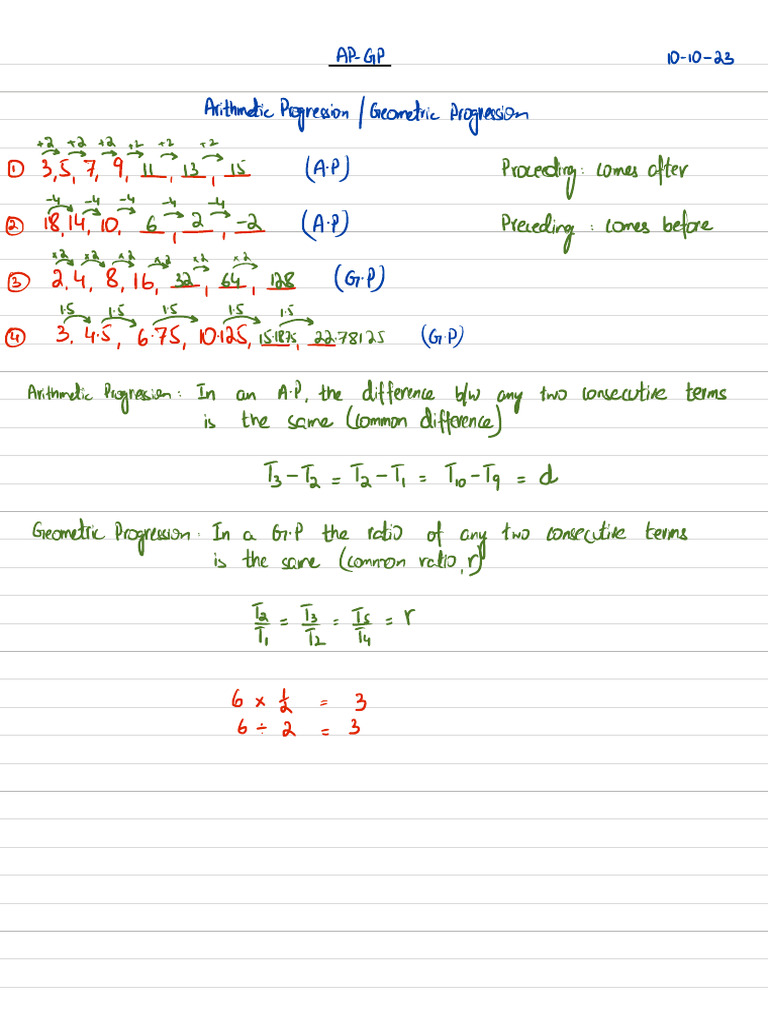 AP-GP 10-10-23
Arithmetic Progression / Geometric Progression
+2 +2 +2 +2 +2 +2
① 3, 5, 7, 9, 11, 13, 15 (A.P) Proceeding: comes after
-4 -4 -4 -4 -4
② 18, 14, 10, 6, 2, -2 (A.P) Preceding: comes before
×2 ×2 ×2 ×2 ×2 ×2
③ 2, 4, 8, 16, 32, 64, 128 (G.P)
1.5 1.5 1.5 1.5 1.5
④ 3, 4.5, 6.75, 10.125, 15.1875, 22.78125 (G.P)
Arithmetic Progression: In an A.P, the difference b/w any two consecutive terms
is the same (common difference)
T₃ - T₂ = T₂ - T₁ = T₁₀ - T₉ = d
Geometric Progression: In a G.P the ratio of any two consecutive terms
is the same (common ratio, r)
T₂/T₁ = T₃/T₂ = T₅/T₄ = r
6 × 1/2 = 3
6 ÷ 2 = 3